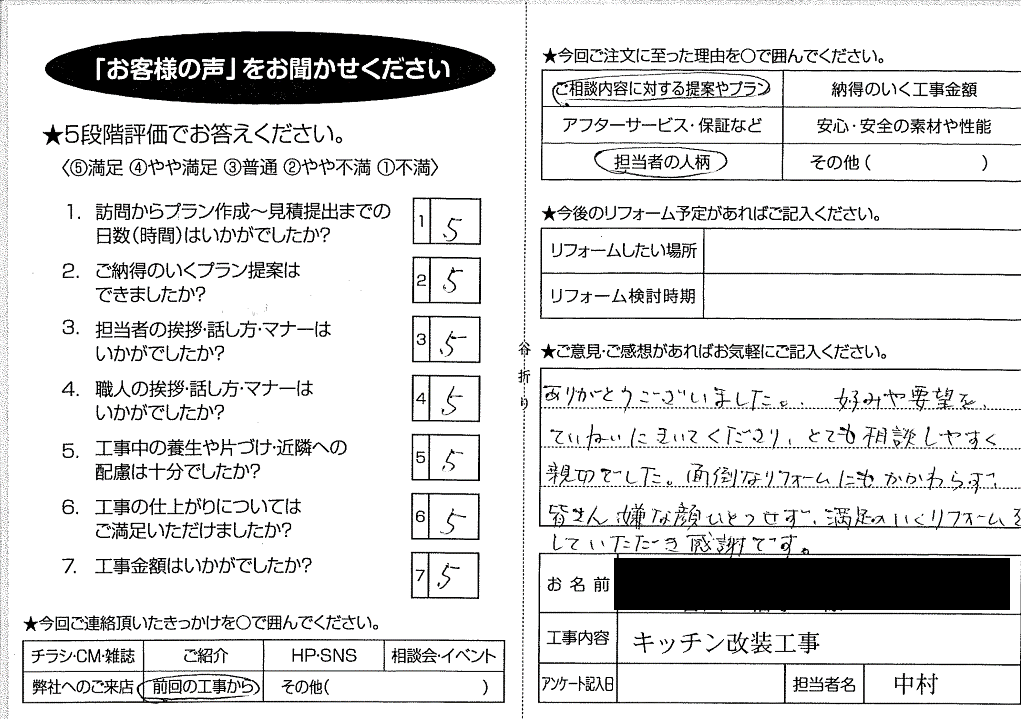 「お客様の声」をお聞かせください
★5段階評価でお答えください。
〈⑤満足 ④やや満足 ③普通 ②やや不満 ①不満〉
1. 訪問からプラン作成～見積提出までの
日数(時間)はいかがでしたか?
1 5
2. ご納得のいくプラン提案は
できましたか?
2 5
3. 担当者の挨拶・話し方・マナーは
いかがでしたか?
3 5
4. 職人の挨拶・話し方・マナーは
いかがでしたか?
4 5
5. 工事中の養生や片づけ・近隣への
配慮は十分でしたか?
5 5
6. 工事の仕上がりについては
ご満足いただけましたか?
6 5
7. 工事金額はいかがでしたか?
7 5
★今回ご連絡頂いたきっかけを〇で囲んでください。
チラシ・CM・雑誌 ご紹介 HP・SNS 相談会・イベント
弊社へのご来店 前回の工事から その他( )
谷折り
★今回ご注文に至った理由を〇で囲んでください。
ご相談内容に対する提案やプラン 納得のいく工事金額
アフターサービス・保証など 安心・安全の素材や性能
担当者の人柄 その他( )
★今後のリフォーム予定があればご記入ください。
リフォームしたい場所
リフォーム検討時期
★ご意見・ご感想があればお気軽にご記入ください。
ありがとうございました。 好みや要望を、
ていねいにきいてくださり、とても相談しやすく
親切でした。面倒なリフォームにもかかわらず、
皆さん嫌な顔ひとつせず、満足のいくリフォームを
していただき感謝です。
お名前
工事内容 キッチン改装工事
アンケート記入日 担当者名 中村